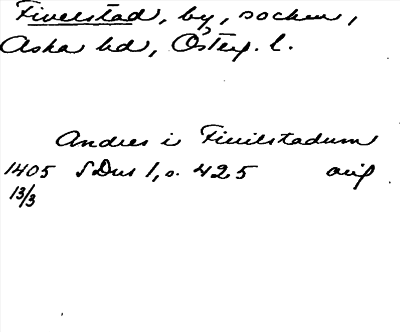 Fivelstad, by, socken,
Aska hd, Österg. l.
Andres i Fiuilstadum
1405 SDns 1, s. 425 orig
13/3